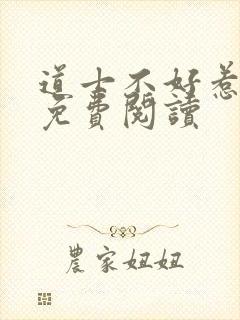 道士不好惹
免費閱讀
農家妞妞